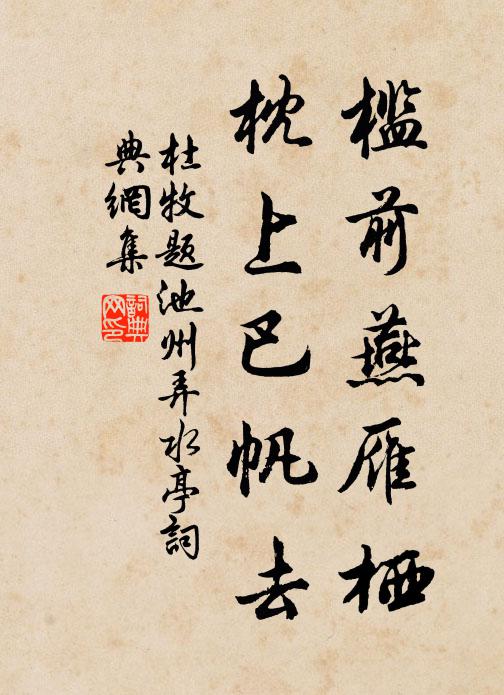 檻前燕雁栖
枕上巴帆去
杜牧題池州弄水亭詞
典網集
詞典網印